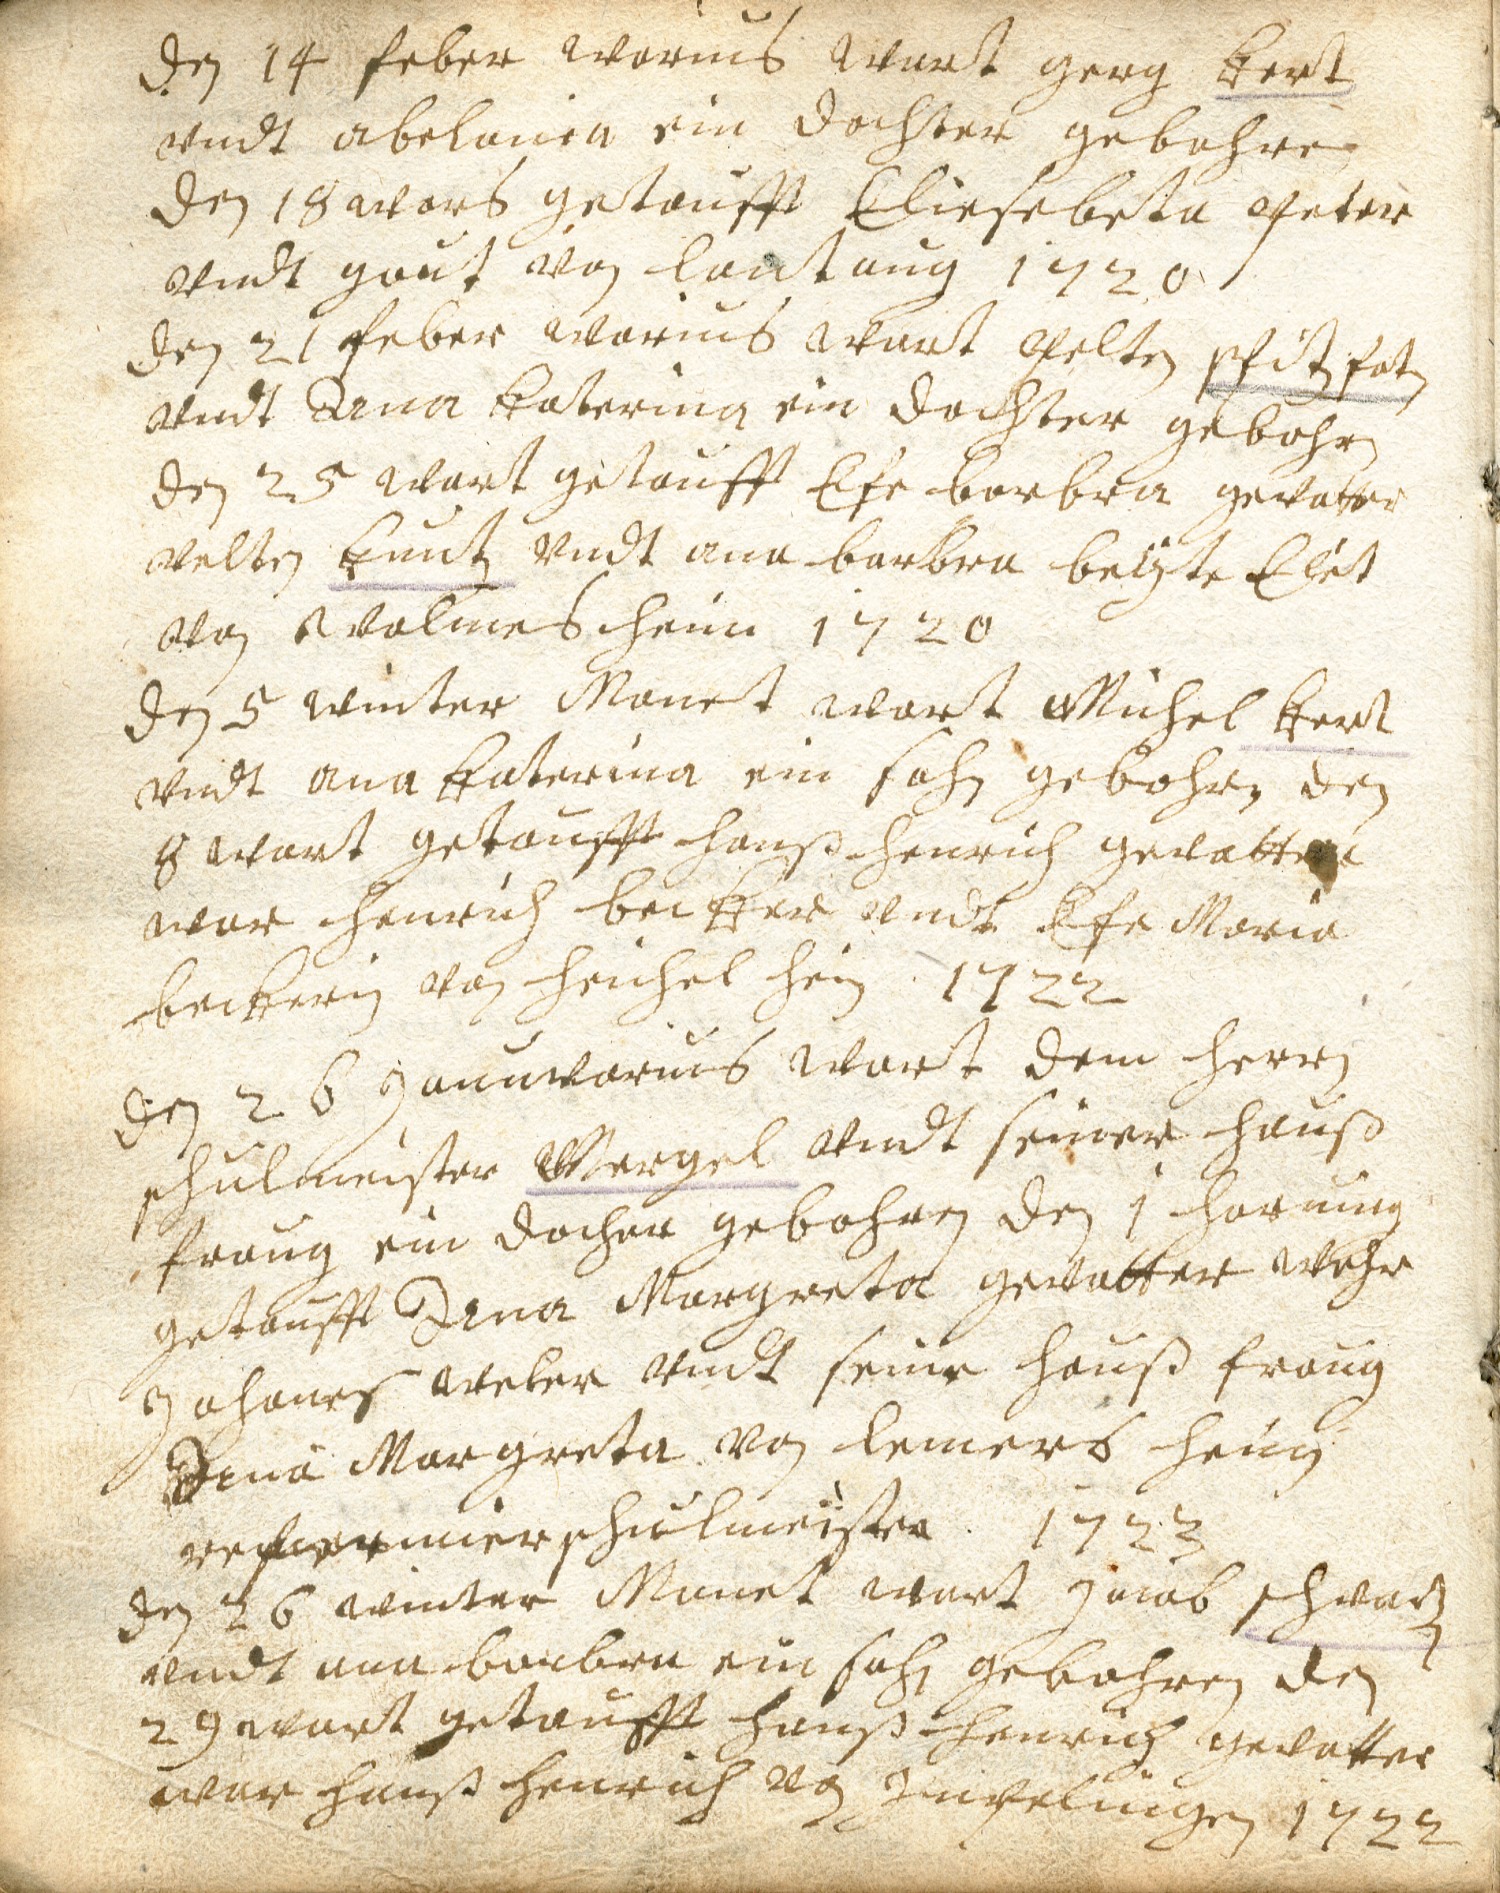 den 14 feber warius wart gerg kert
vndt abelonia ein dochter gebohre
den 18 wars getaufft Eliesebeta peter
vndt gout von lantaug 1720
den 21 feber warius wart velten schitz
vndt Anna katerina ein dochter gebohrn
den 25 wart getaufft Efe barbra gevatter
velten kuntz vndt ana barbra beyte
von Wolmesheim 1720
den 5 winter Monet wart Michel kert
vndt ana katerina ein sohn gebohrn den
8 wart getaufft hanß henrich gevatter
war henrich becker vndt Efe Maria
beckerin von heichelheim 1722
den 26 Januwarius wart dem herrn
schulmeister Mergel vndt seiner hauß
fraug ein docher gebohren den 1 hornung
getaufft Anna Margreta gevatter wehr
Johanes weber vndt seine hauß fraug
Anna Margreta von lemersheim
reformier schulmeister 1723
den 26 winter Monet wart Jacob schwartz
vndt ana barbra ein sohn gebohren den
29 wart getaufft hanß henrich gevatter
war hanß henrich von Impflingen 1722